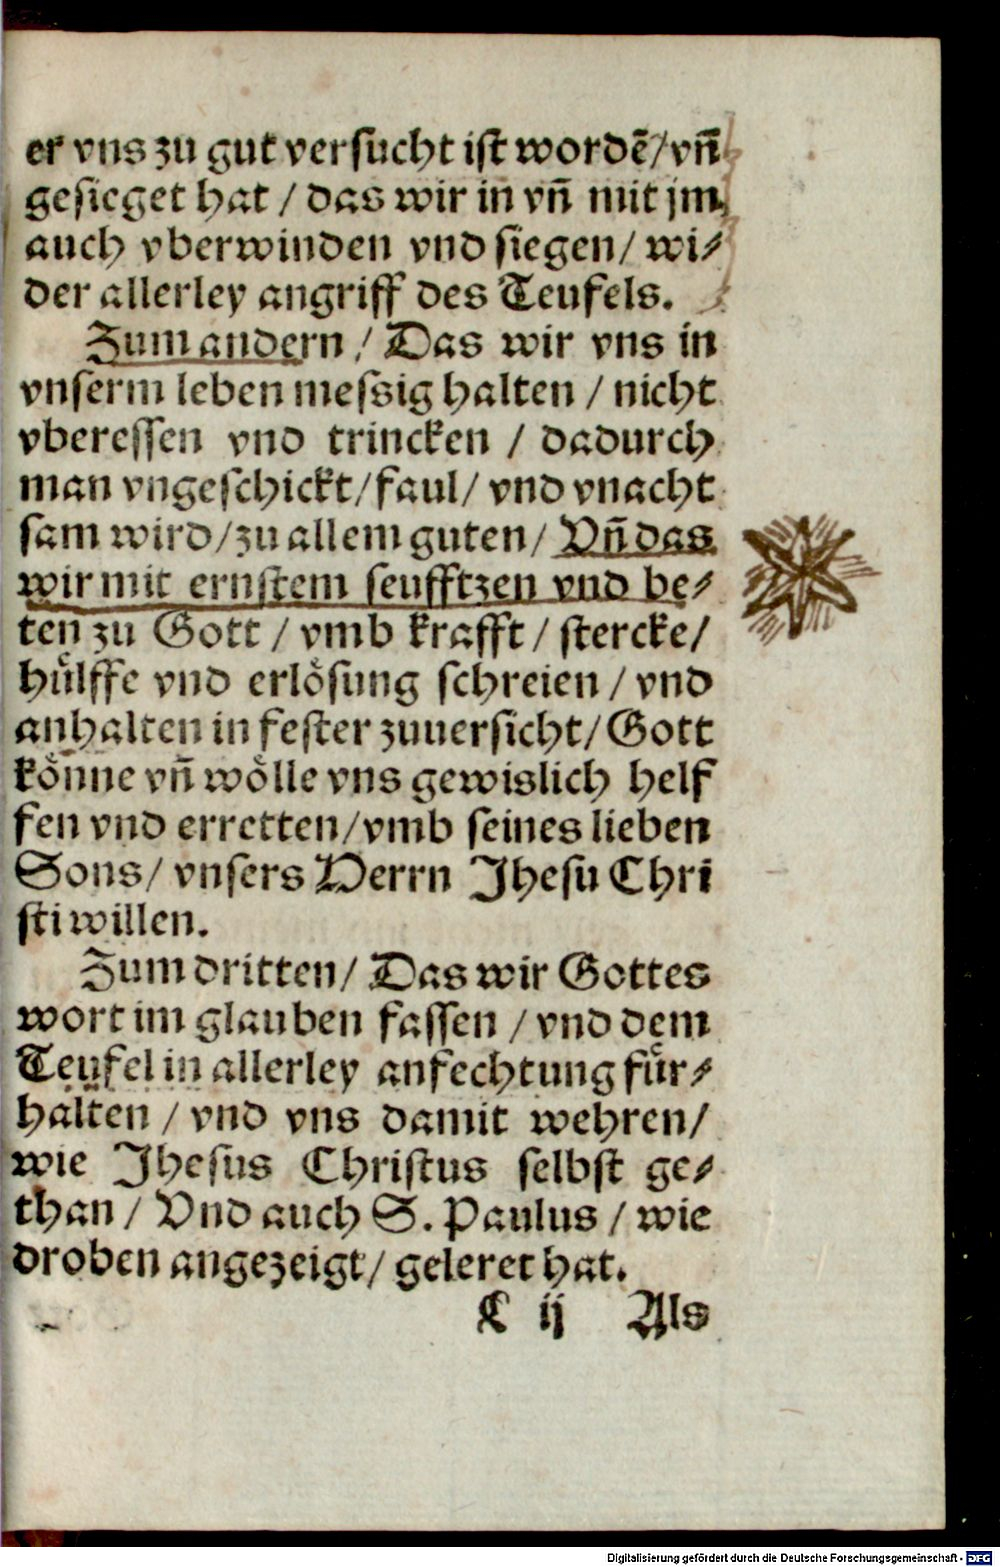 er vns zu gut versucht ist wordẽ/vñ
gesieget hat / das wir in vñ mit jm
auch vberwinden vnd siegen/ wi⸗
der allerley angriff des Teufels.
Zum andern / Das wir vns in
vnserm leben messig halten / nicht
vberessen vnd trincken / dadurch
man vngeschickt/faul/ vnd vnacht
sam wird/zu allem guten/ Vñ das
wir mit ernstem seufftzen vnd be⸗
ten zu Gott / vmb krafft/ stercke/
huͤlffe vnd erloͤsung schreien / vnd
anhalten in fester zuuersicht/ Gott
koͤnne vñ woͤlle vns gewislich helf
fen vnd erretten/vmb seines lieben
Sons/ vnsers Herrn Jhesu Chri
sti willen.
Zum dritten/ Das wir Gottes
wort im glauben fassen / vnd dem
Teufel in allerley anfechtung fuͤr⸗
halten / vnd vns damit wehren/
wie Jhesus Christus selbst ge⸗
than / Vnd auch S. Paulus / wie
droben angezeigt/ geleret hat.
C ij Als
Digitalisierung gefördert durch die Deutsche Forschungsgemeinschaft - DFG